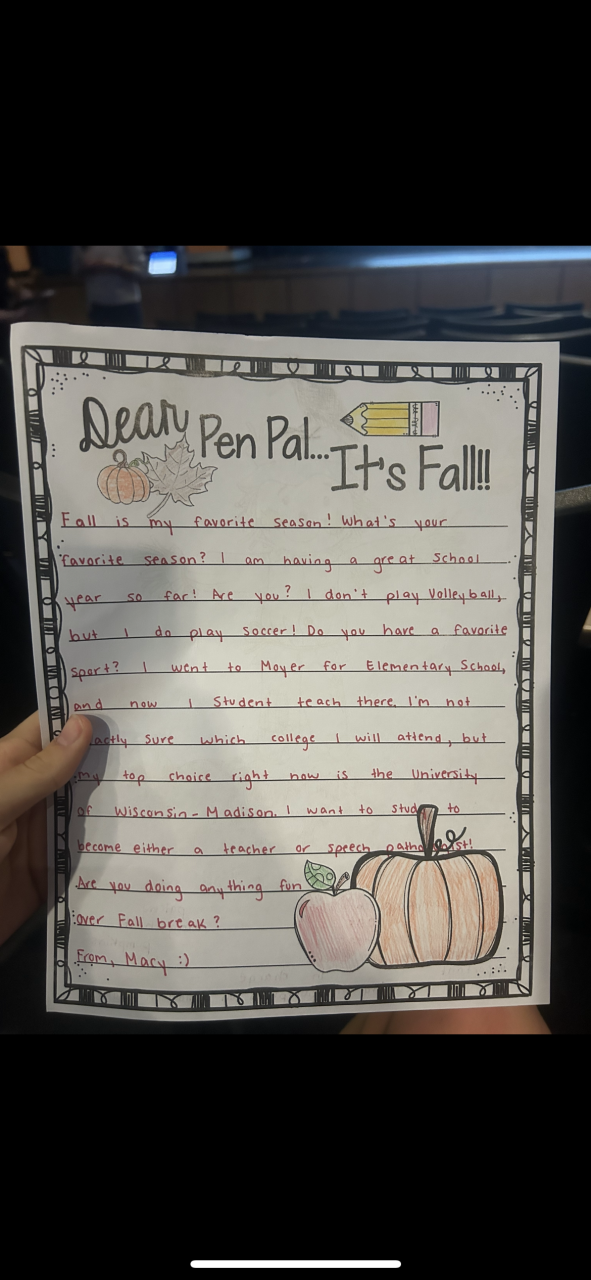 Dear Pen Pal... It's Fall!!
Fall is my favorite season! What's your
favorite season? I am having a great school
year so far! Are you? I don't play Volleyball,
but I do play soccer! Do you have a favorite
sport? I went to Moyer for Elementary School,
and now I student teach there. I'm not
actly sure which college I will attend, but
my top choice right now is the University
of Wisconsin-Madison. I want to study to
become either a teacher or speech pathologist!
Are you doing anything fun
over Fall break?
From, Macy :)